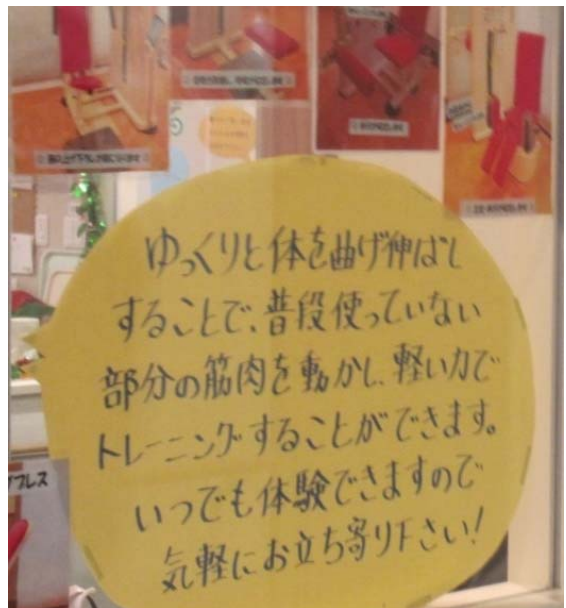 ゆっくりと体を曲げ伸ばし
することで、普段使っていない
部分の筋肉を動かし、軽い力で
トレーニングすることができます。
いつでも体験できますので
気軽にお立ち寄り下さい!
プレス